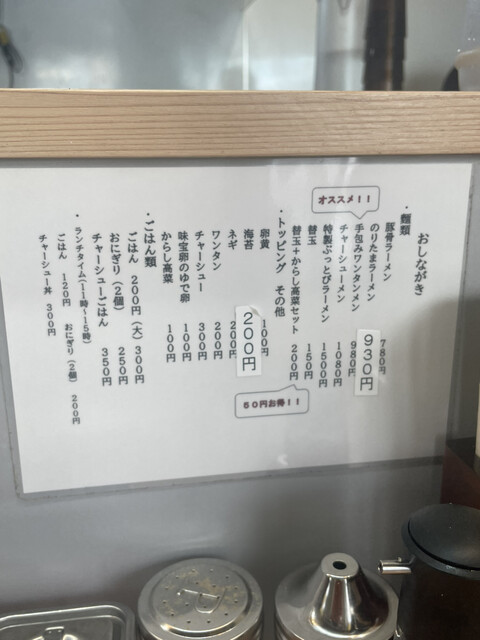 おしながき
・麺類
豚骨ラーメン 780円
のりたまラーメン 930円
オススメ!!
手包みワンタンメン 980円
チャーシューメン 1080円
特製ぶっとびラーメン 1500円
替玉 150円
替玉+からし高菜セット 200円
50円お得!!
・トッピング その他
卵黄 100円
海苔 200円
ネギ 200円
ワンタン 200円
チャーシュー 300円
味宝卵のゆで卵 100円
からし高菜 100円
・ごはん類
ごはん 200円 (大) 300円
おにぎり(2個) 250円
チャーシューごはん 350円
・ランチタイム(11時~15時)
ごはん 120円 おにぎり(2個) 200円
チャーシュー丼 300円